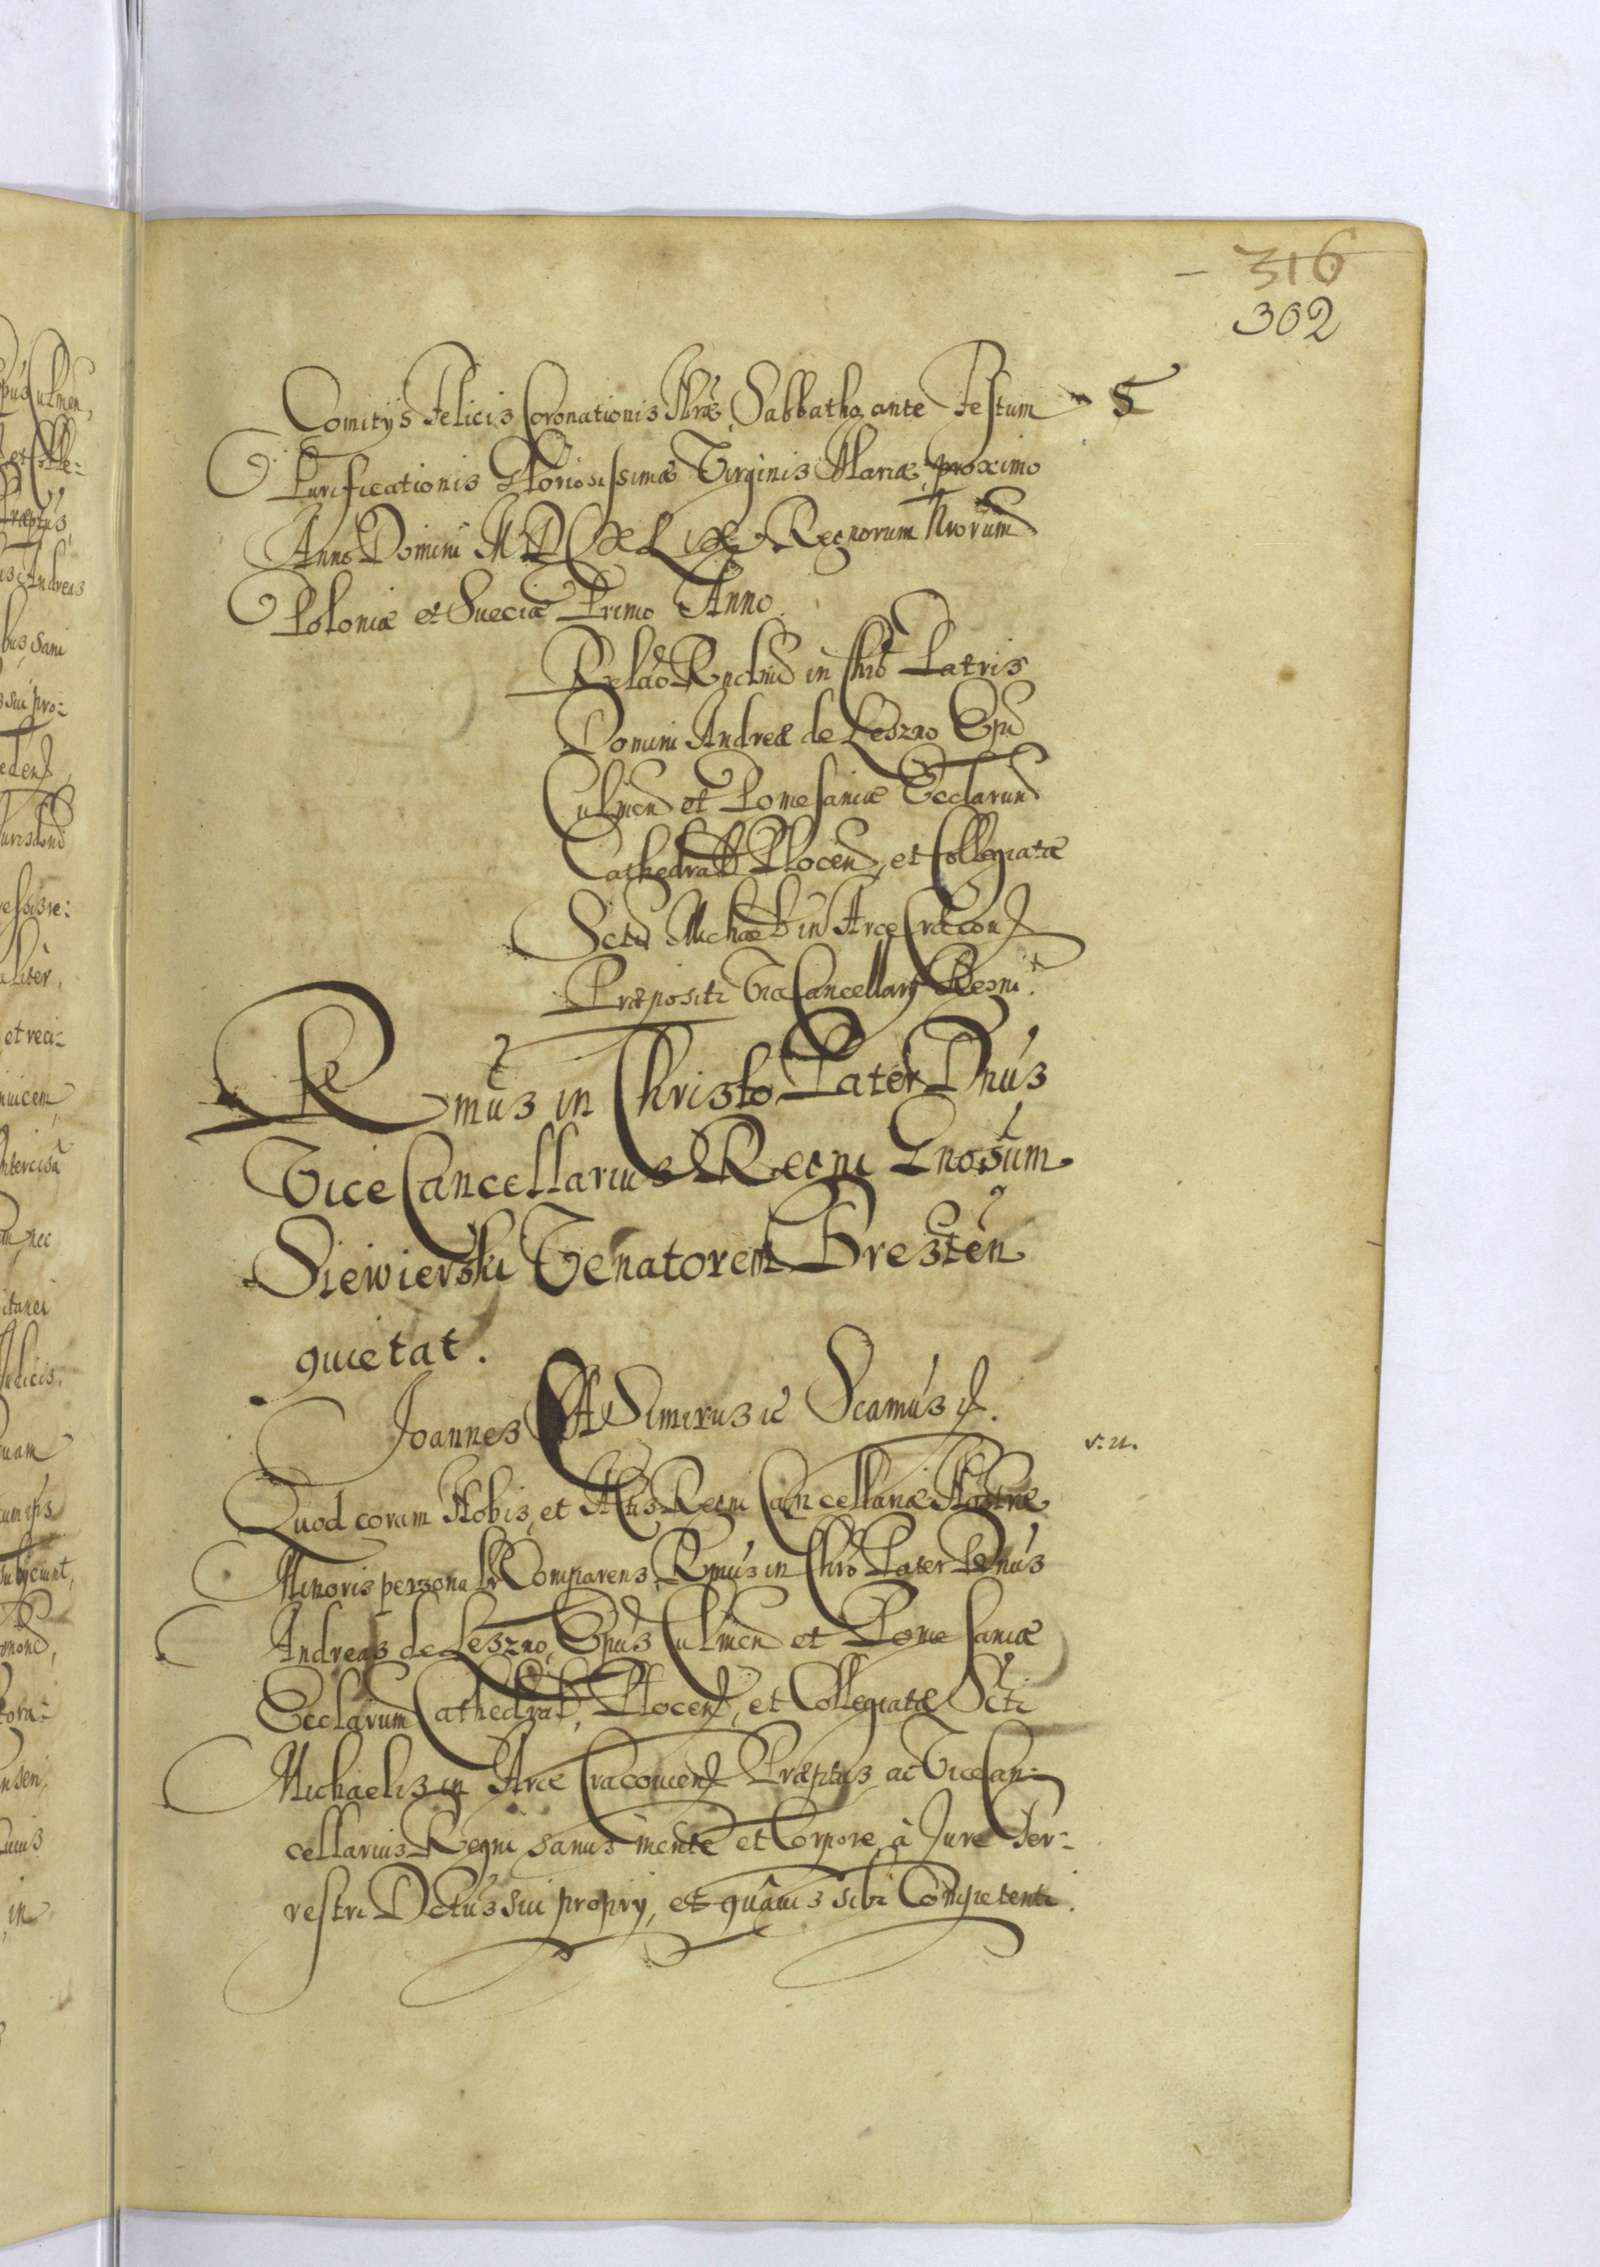 316
302
Comitijs Felicis Coronationis Nrae, Sabbatho ante Festum
Purificationis Gloriosissimae Virginis Mariae, proximo
Anno Domini MDCXLIX Regnorum Nrorum
Poloniae et Sueciae Primo Anno.
Relao Rndmi in Chro Patris
Domini Andreae de Leszno Epi
Culmen et Pomesaniae Ecclarum
Cathedral Plocen, et Collegiatae
Scti Michael in Arce Cracon
Praepositi ViceCancellarij Regni.
Rmus in Christo Pater Dnus
ViceCancellarius Regni Gnosum
Siewierski Venatorem Bresten
quietat.
Joannes Casimirus
v. u.
Quod coram Nobis, et Actis Regni Cancellariae Nostrae
Minoris persona Comparens, Rmus in Chro Pater Dnus
Andreas de Leszno, Epus Culmen et Pomesaniae
Ecclarum Cathedral, Plocen, et Collegiatae Scti
Michaelis in Arce Cracovien Praeptus ac ViceCan-
cellarius Regni sanus mente et Corpore, à Jure Ter-
restri Dctus sui proprij, et quavis sibi Competenti.